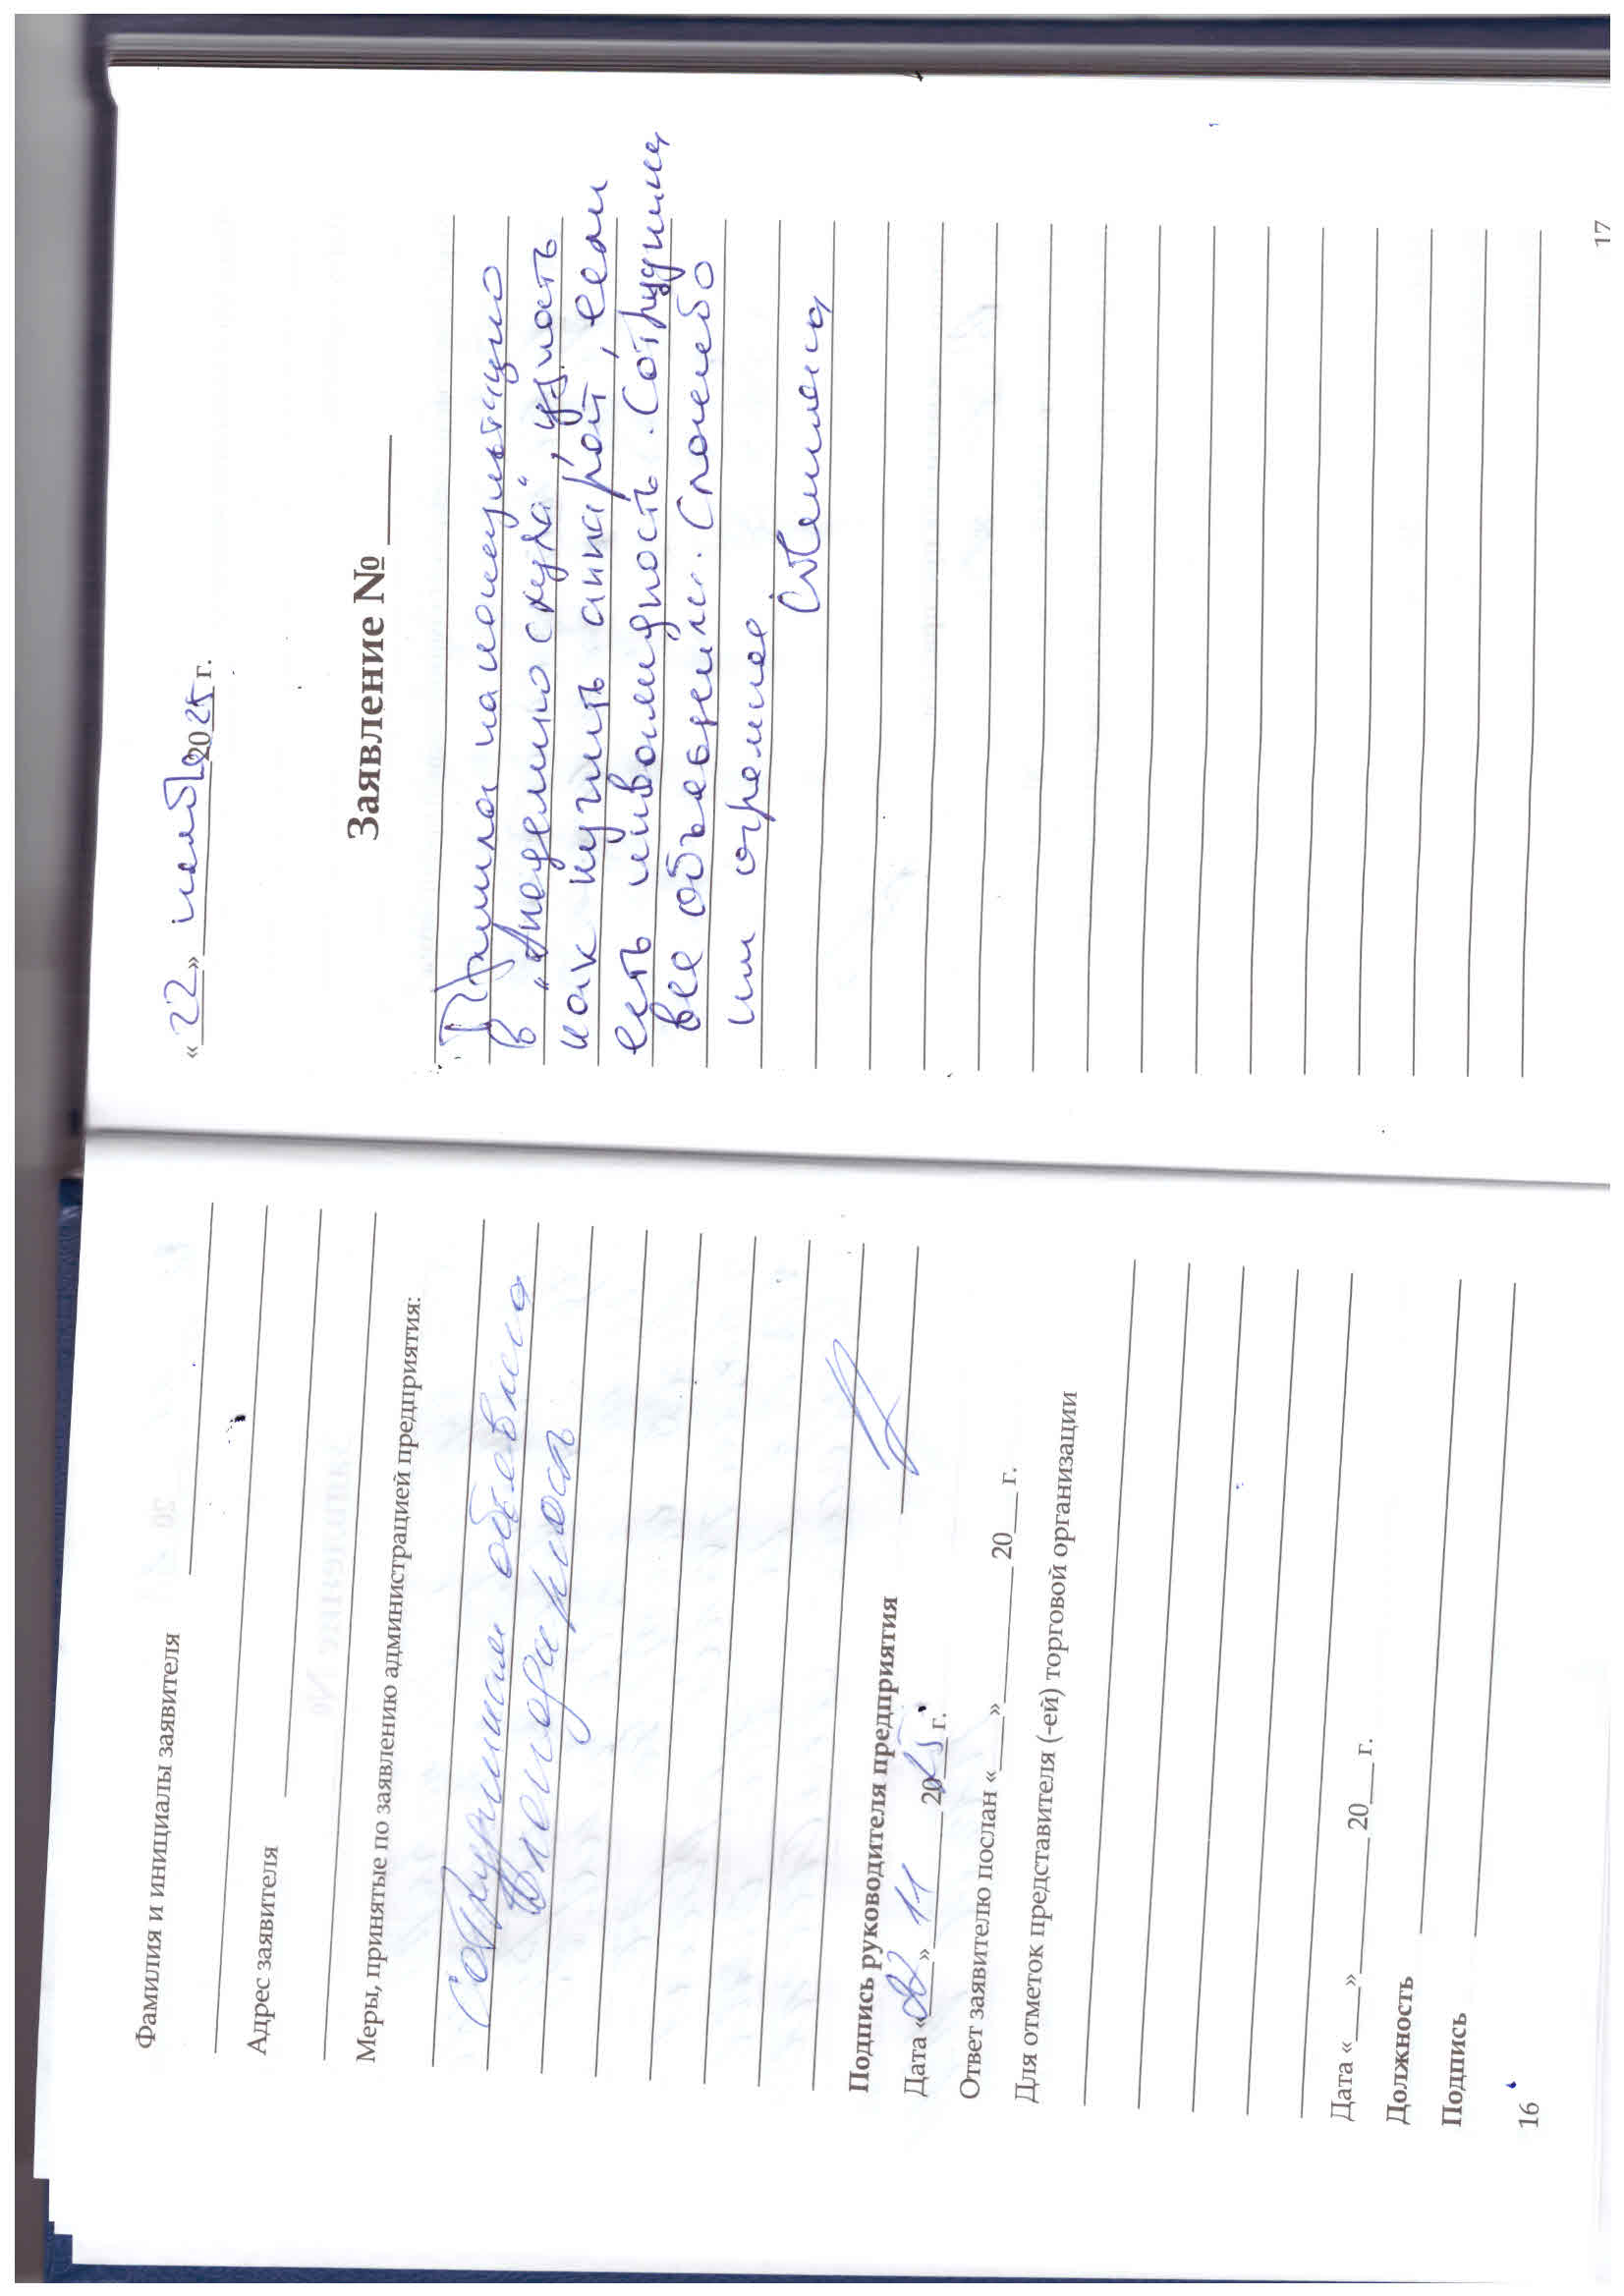 Фамилия и инициалы заявителя
Адрес заявителя
Меры, принятые по заявлению администрацией предприятия:
Сотрудникам объявлена
благодарность
Подпись руководителя предприятия
Дата «22» 11 2025 г.
Ответ заявителю послан «___» ______ 20___ г.
Для отметок представителя (-ей) торговой организации
Дата «___» ______ 20___ г.
Должность
Подпись
16
«22» ноября 2025 г.
Заявление № ____
Пришла на консультацию
в "Академию слуха", узнать
как купить аппарат, если
есть инвалидность. Сотрудники
все объяснили. Спасибо
им огромное.
17